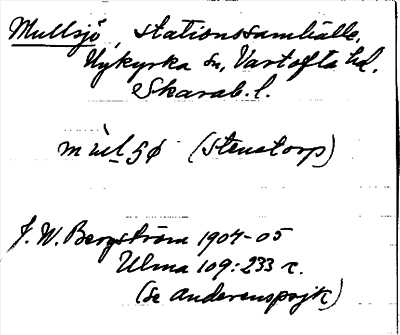 Mullsjö, stationssamhälle,
Nykyrka sn, Vartofta hd.
Skarab. l.
(Stenstorp)
J. W. Bergström 1904-05
Ulma 109:233 r.
(se Anderenspojk)